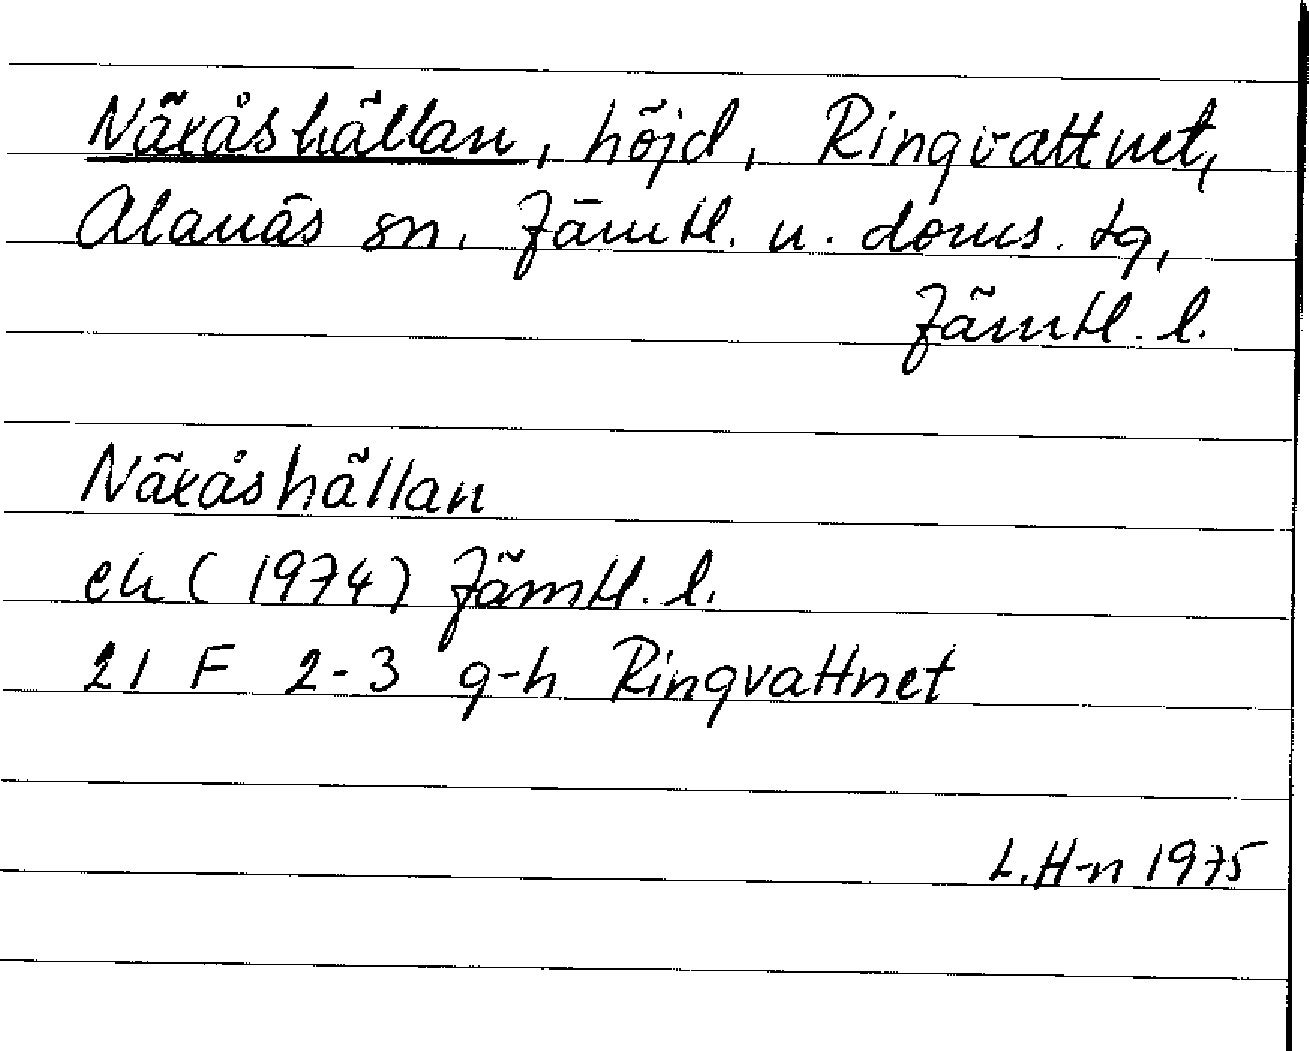 Näxåshällan, höjd, Ringvattnet,
Alanäs sn, Jämtl. n. doms. tg,
Jämtl. l.
Näxåshällan
ek (1974) Jämtl. l.
21 F 2-3 g-h Ringvattnet
L.H-n 1975